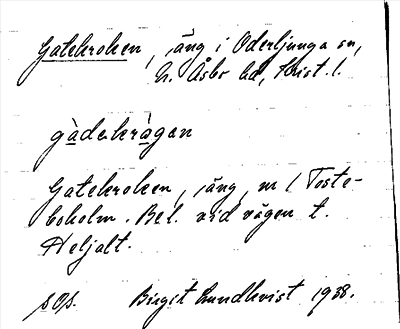 Gatekroken, äng i Oderljunga sn,
N. Åsbo hd, Krist. l.
gàdekràgan
Gatekroken, äng, m l Toste-
boholm. Bel. vid vägen t.
Heljalt.
Birgit Lundkvist 1938.